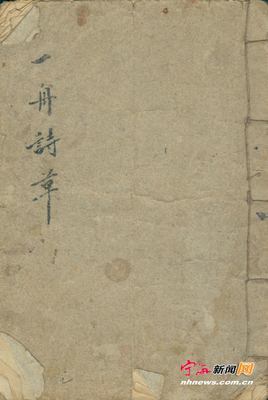 一舟詩草
宁海新闻网
nhnews.com.cn